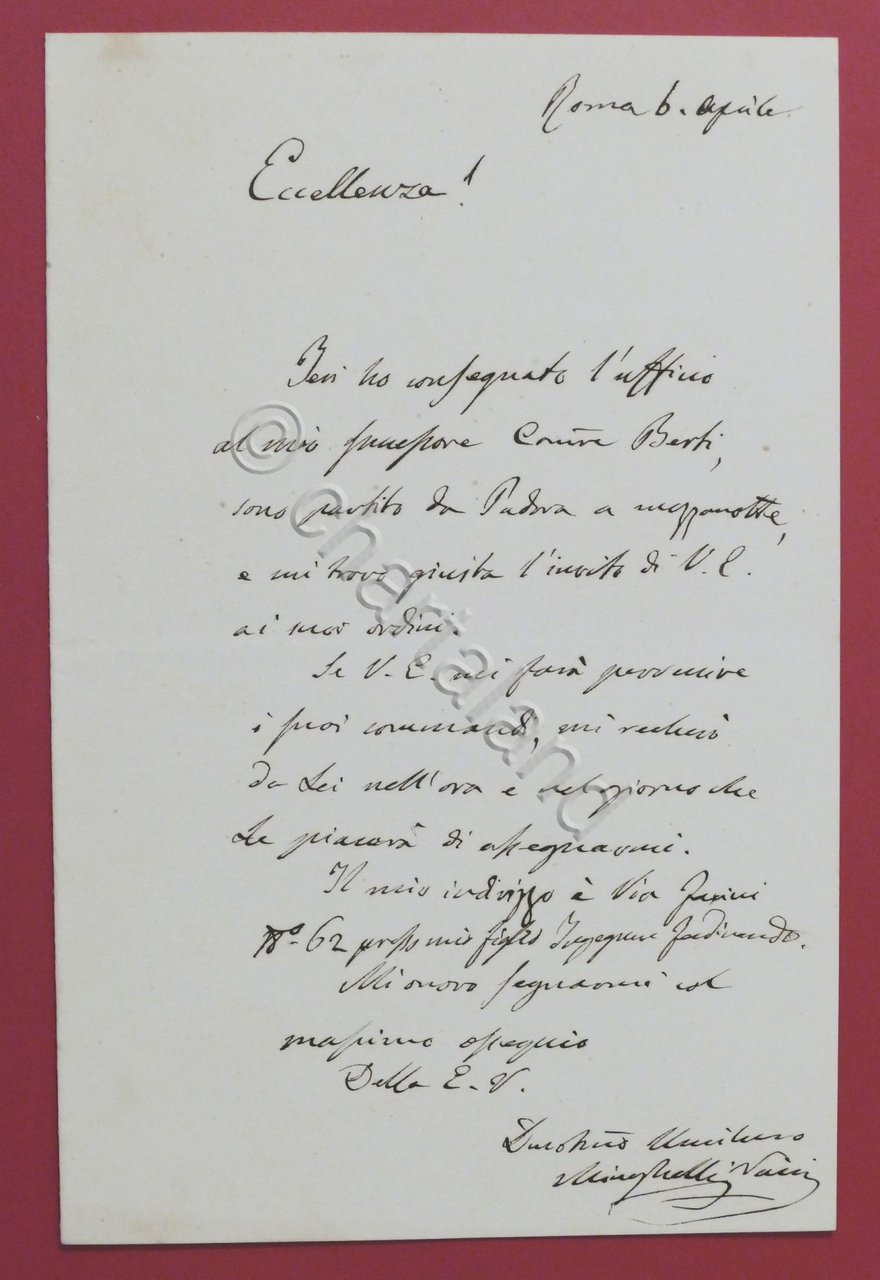 Roma 6. Aprile.
Eccellenza!
Ieri ho consegnato l'uffizio
al mio successore Comre Berti,
sono partito da Padova a mezzanotte,
e mi trovo giusta l'invito di V. E.
ai suoi ordini.
Se V. E. mi farà pervenire
i suoi commandi, mi recherò
da Lei nell'ora e nel giorno che
Le piacerà di assegnarmi.
Il mio indirizzo è Via Farini
No. 62 presso mio figlio Ingegnere Ferdinando.
Mi onoro segnarmi col
massimo ossequio
Della E. V.
Devotmo Umilmo
Minghelli Vaini
© chartaland